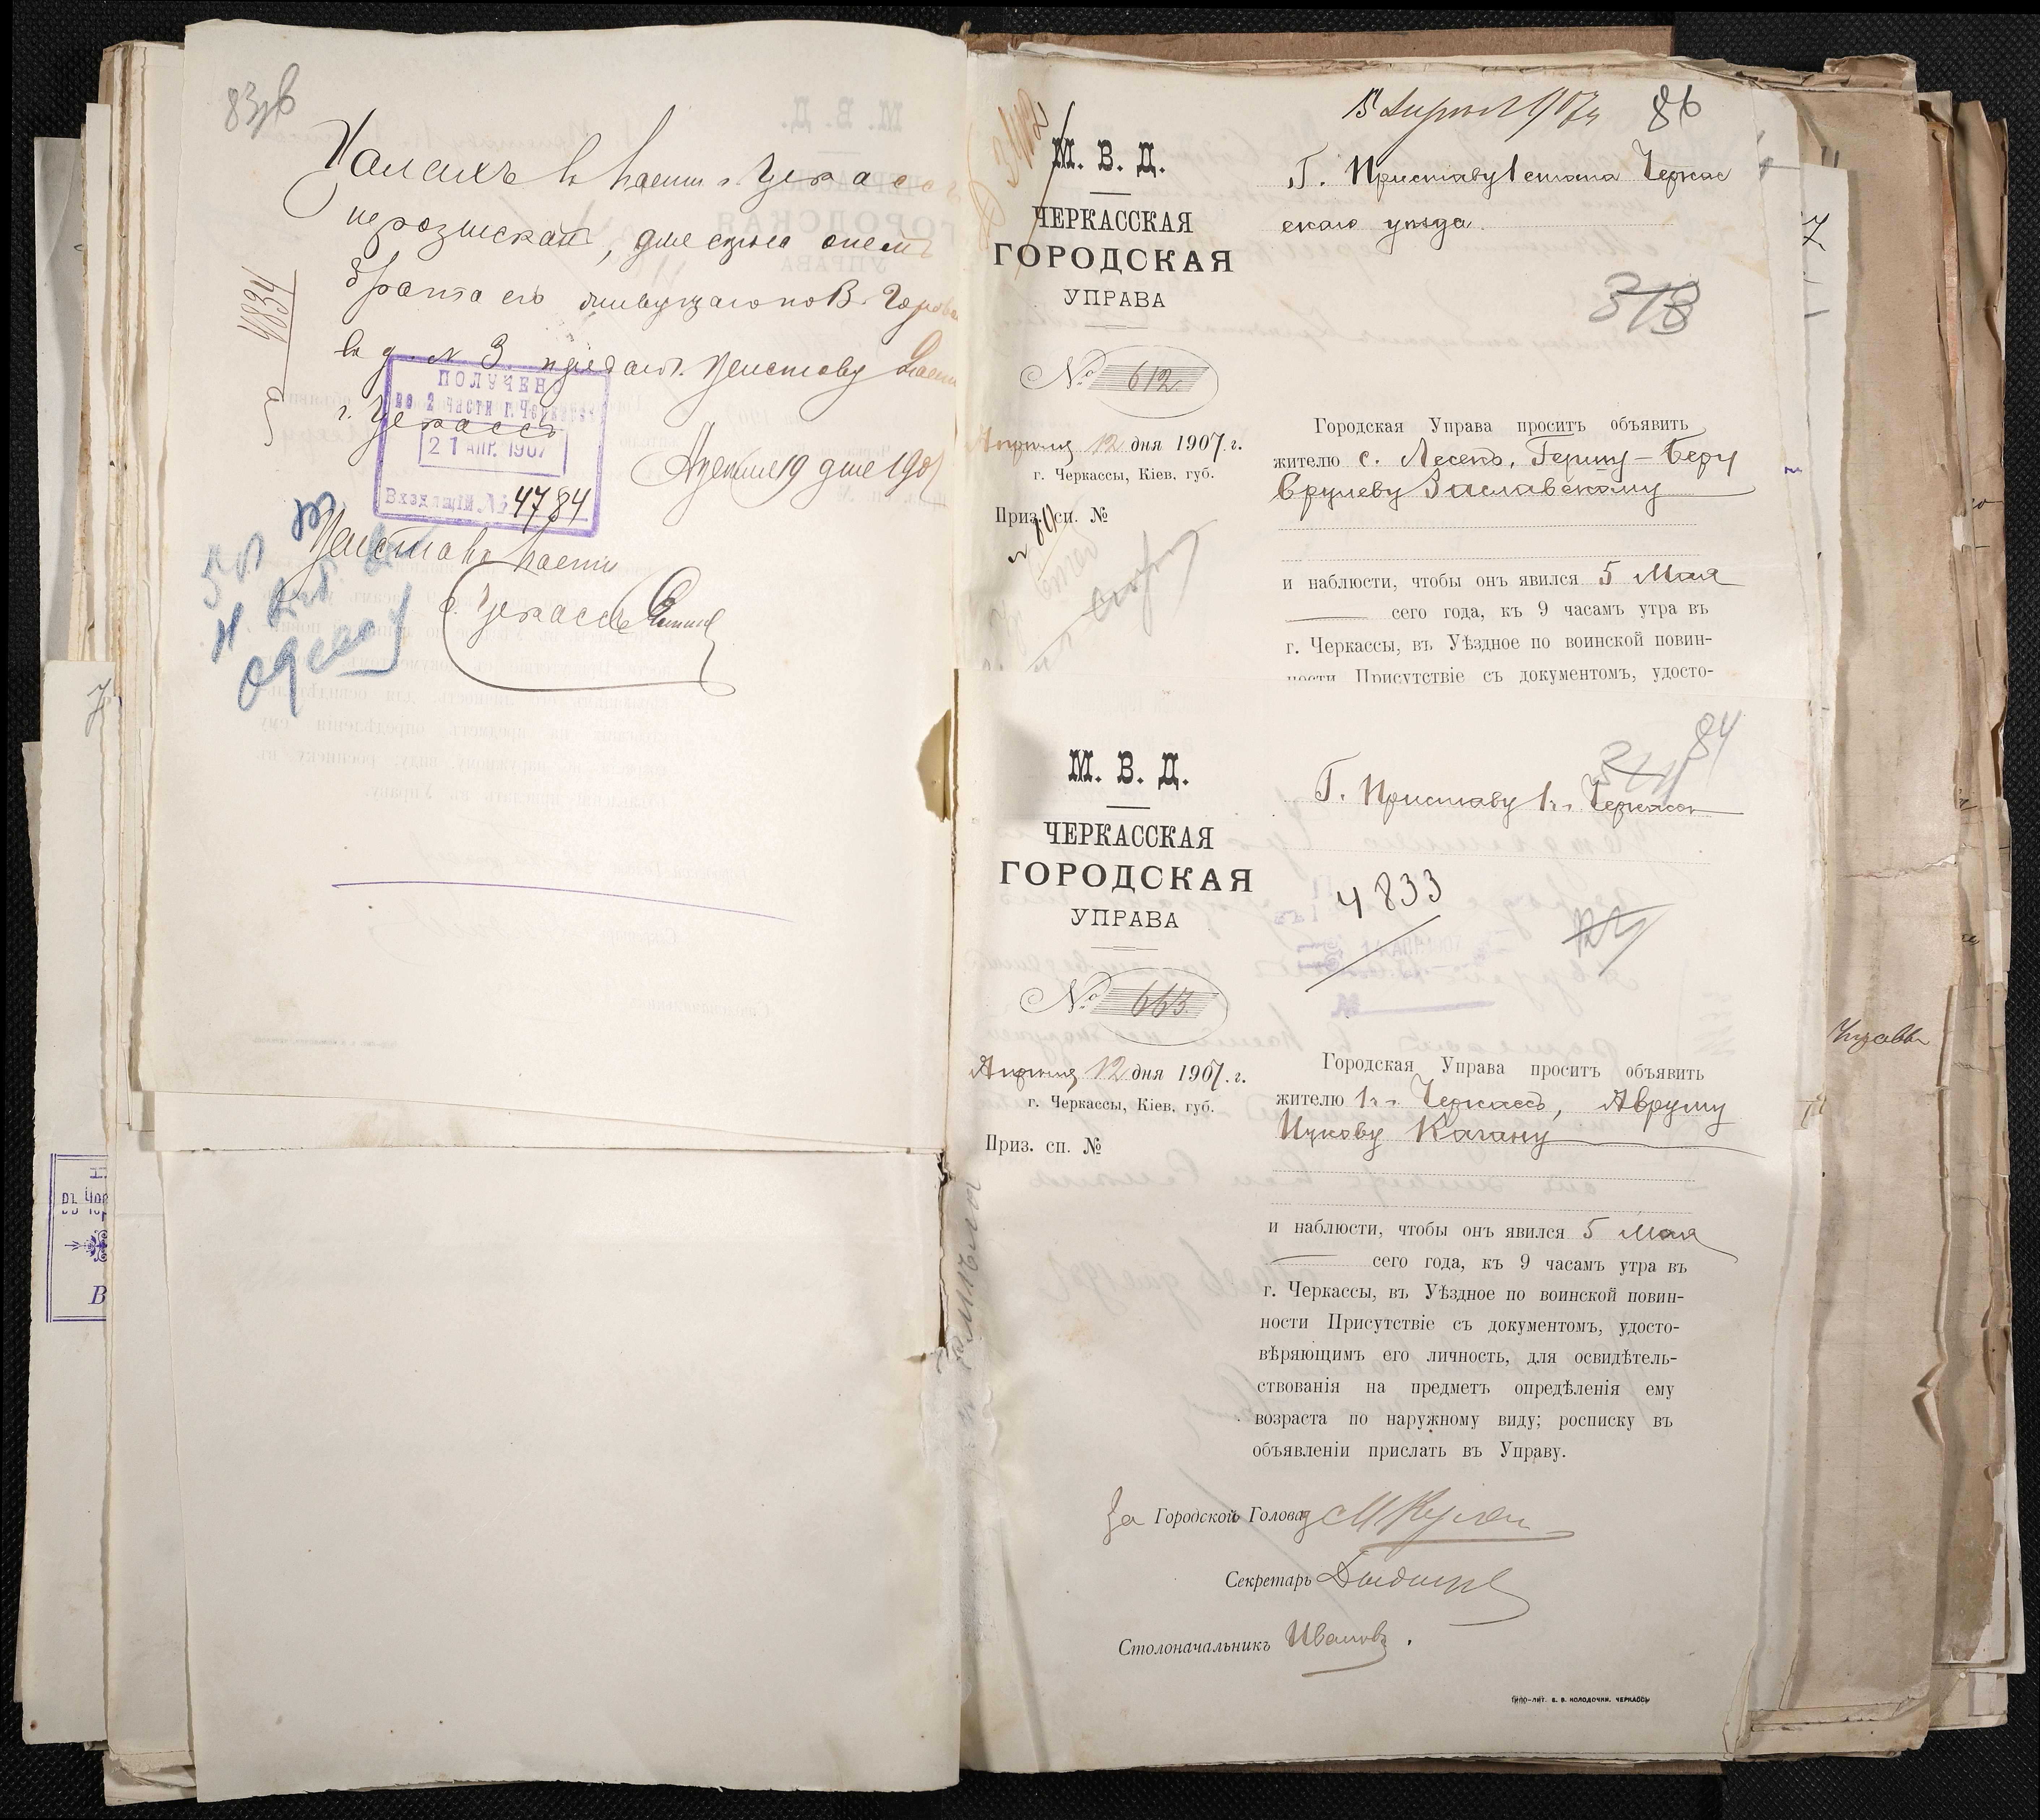 83об
въ части г. Черкассъ
не розысканъ,
брата его живущаго по В.
въ д. № 3 передать Приставу
г. Черкассъ
19 дня 1907
4834
ПОЛУЧЕНО
во 2 части г. Черкассъ
21 АПР. 1907
Входящій № 4784
Приставъ части
г. Черкассъ
86
М. В. Д.
ЧЕРКАССКАЯ
ГОРОДСКАЯ
УПРАВА
№ 612
Апрѣля 12 дня 1907 г.
г. Черкассы, Кіев. губ.
Приз. сп. №
Г. Приставу 1 стана Черкас
скаго уѣзда
318
Городская Управа проситъ объявить
жителю с. Лесекъ, Гершу-Беру
Срулеву Заславскому
и наблюсти, чтобы онъ явился 5 Мая
сего года, къ 9 часамъ утра въ
г. Черкассы, въ Уѣздное по воинской повин-
ности Присутствіе съ документомъ, удосто-
84
М. В. Д.
ЧЕРКАССКАЯ
ГОРОДСКАЯ
УПРАВА
№ 663
Апрѣля 12 дня 1907 г.
г. Черкассы, Кіев. губ.
Приз. сп. №
Г. Приставу 1 ч. Черкассъ
4833
Городская Управа проситъ объявить
жителю 1 ч. Черкассъ, Авруму
Ицкову Кагану
и наблюсти, чтобы онъ явился 5 Мая
сего года, къ 9 часамъ утра въ
г. Черкассы, въ Уѣздное по воинской повин-
ности Присутствіе съ документомъ, удосто-
вѣряющимъ его личность, для освидѣтель-
ствованія на предметъ опредѣленія ему
возраста по наружному виду; росписку въ
объявленіи прислать въ Управу.
За Городской Голова
Секретарь
Столоначальникъ Ивановъ.
ТИПО-ЛИТ. В. В. КОЛОДОЧКИ. ЧЕРКАССЫ